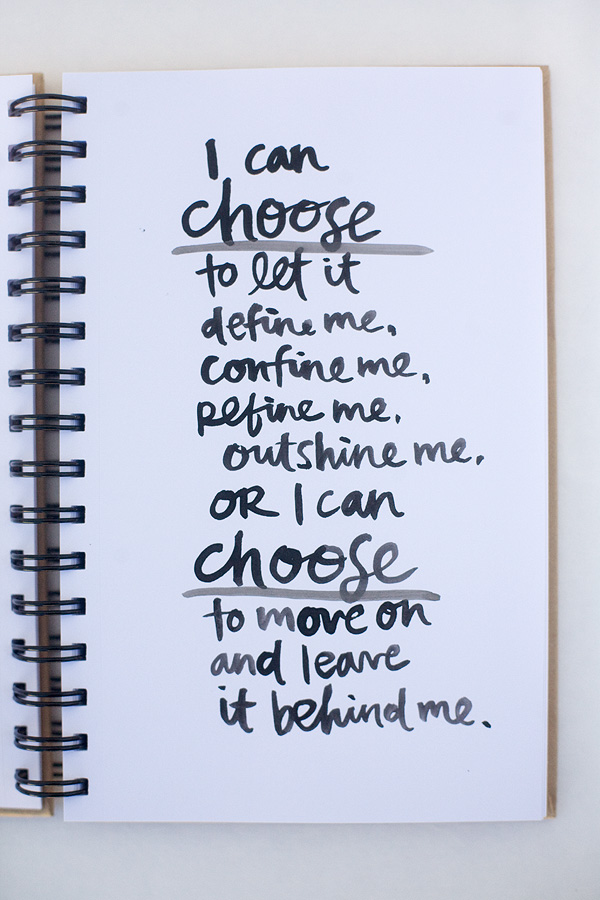 I can
choose
to let it
define me,
confine me,
refine me,
outshine me,
OR I can
choose
to move on
and leave
it behind me.